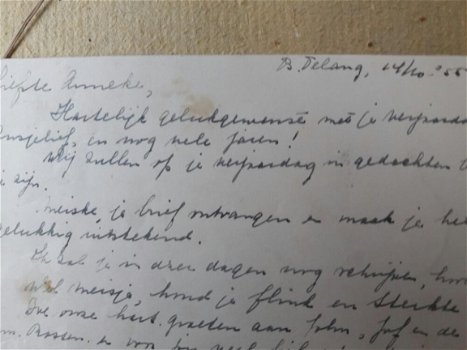 B. Telang, 14/10 '55
liefste Anneke,
Hartelijk gelukgewenst met je verjaardag
en nog vele jaren!
Wij zullen op je verjaardag in gedachten b
je zijn.
Meiske, je brief ontvangen en maak je he
gelukkig uitstekend.
Ik zal je in drie dagen nog schrijven, hou
Wel meisje, houd je flink en sterkte
Doe onze hart. groeten aan John, Jof en de